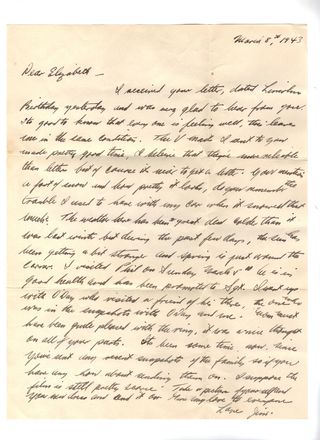 March 8, 1943
Dear Elizabeth —
I received your letter, dated Lincolns
Birthday yesterday and was very glad to hear from you.
Its good to know that every one is feeling well, this leaves
me in the same condition. The V mail I sent to you
made pretty good time, I believe that they're more reliable
than letters but of course it's nicer to get a letter. You mention
a foot of snow and how pretty it looks, do you remember the
trouble I used to have with my car when it snowed that
much. The weather here has been great and colder than it
was last winter but during the past few days, the sun has
been getting a bit stronger and spring is just around the
corner. I visited Phil on Sunday March 7th he is in
good health and has been promoted to Sgt. I went up
with O'Day who visited a friend of his there,
was in the snapshots with O'Day and me. must
have been quite pleased with the ring, it was a nice thought
on all of your parts. Its been some time now, since
you've sent any recent snapshots of the family so if you
have any how about sending them on. I suppose the
film is still pretty scarce. Take a picture of yourself
and send it on. Give my love to everyone
Love Jim.